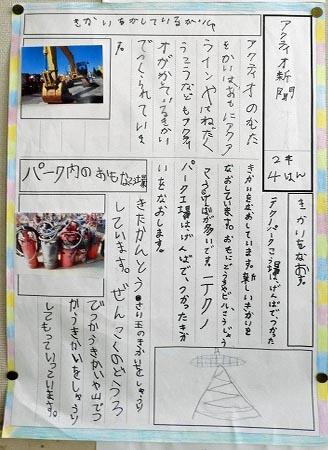 アクティオ新聞
2年
4はん
きかいをかしているかいしゃ
アクティオのむた
きかいはおもにアクア
ラインやはねだく
うこうなどもアクティ
オがかしているきかい
でつくられていま
す。
きかいをなおす。
テクノパークこう場は、げんばで、つかった
きかいをなおしています。新しいきかいを
なおしています。おもにどうろやビルこうじょう
こうげばが多いです。テクノ
パーク工場はげんばで、つかったきか
いをなおします。
パーク内のおもな場
きたかんとう
しています。ぜんこくのどうろ
でつかうきかいや山でつ
かうきかいをしゅうり
してもっていっています。